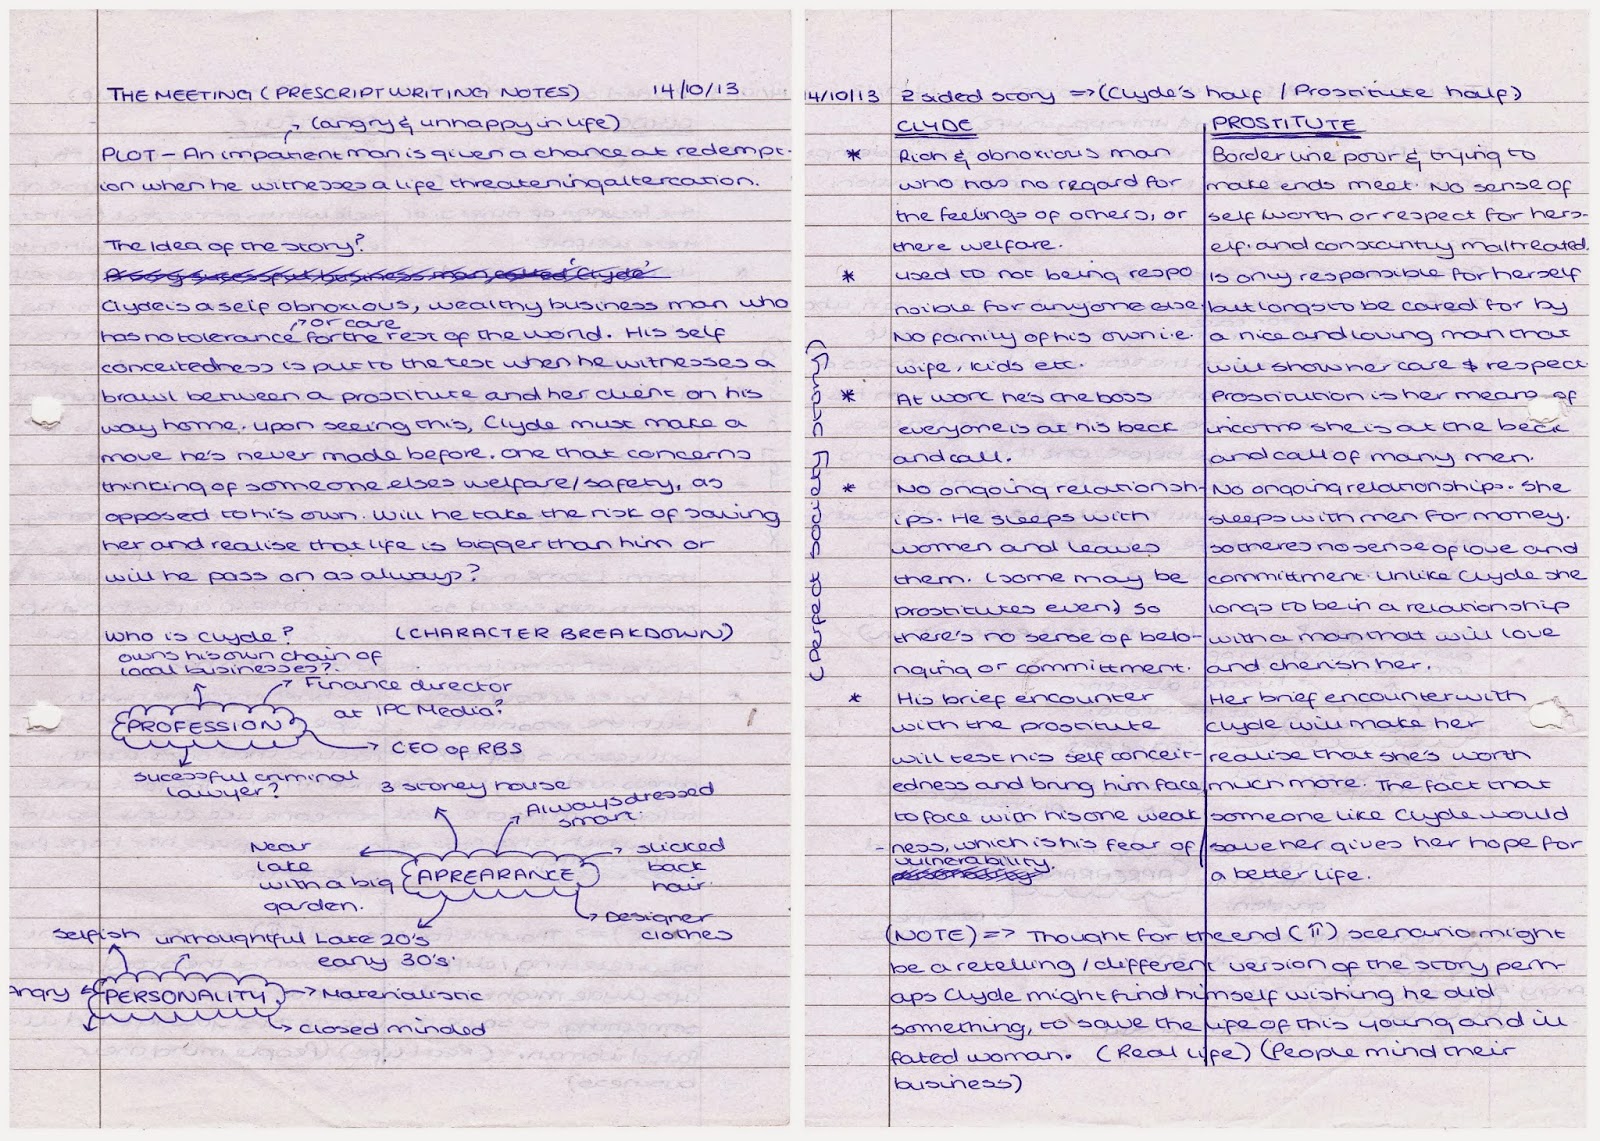 THE MEETING (PRESCRIPT WRITING NOTES) 14/10/13
(angry & unhappy in life)
PLOT - An impatient man is given a chance at redempt-
ion when he witnesses a life threatening altercation.
The Idea of the story?
A successful business man called 'Clyde'
Clyde is a self obnoxious, wealthy business man who
or care
has no tolerance for the rest of the world. His self
conceitedness is put to the test when he witnesses a
brawl between a prostitute and her client on his
way home. upon seeing this, Clyde must make a
move he's never made before. one that concerns
thinking of someone elses welfare/safety, as
opposed to his own. Will he take the risk of saving
her and realise that life is bigger than him or
will he pass on as always?
who is Clyde? (CHARACTER BREAKDOWN)
owns his own chain of
local businesses?.
Finance director
at IPC Media?
PROFESSION
CEO of RBS
sucessful criminal
lawyer?
3 storey house
Always dressed
smart.
Near
lake
with a big
garden.
APREARANCE
slicked
back
hair.
Designer
clothes
Late 20's
early 30's.
selfish
unthoughtful
Angry
PERSONALITY
Materialistic
closed minded
14/10/13 2 sided story => (Clyde's half / Prostitute half)
(Perfect society story)
CLYDE
* Rich & obnoxious man
who has no regard for
the feelings of others, or
there welfare.
* used to not being respo
nsible for anyone else.
No family of his own i.e.
wife, kids etc.
* At work he's the boss
everyone is at his beck
and call.
* No ongoing relationsh-
ips. He sleeps with
women and leaves
them. (some may be
prostitutes even) so
there's no sense of belo-
nging or committment.
* His brief encounter
with the prostitute
will test his self conceit-
edness and bring him face
to face with his one weak
-ness, which is his fear of
vulnerability.
PROSTITUTE
Border line pour & trying to
make ends meet. No sense of
self worth or respect for hers-
elf. and constantly maltreated.
Is only responsible for herself
but longs to be cared for by
a nice and loving man that
will show her care & respect
Prostitution is her means of
income she is at the beck
and call of many men.
No ongoing relationships. She
sleeps with men for money.
so theres no sense of love and
committment. unlike Clyde she
longs to be in a relationship
with a man that will love
and cherish her.
Her brief encounter with
Clyde will make her
realise that she's worth
much more. The fact that
someone like Clyde would
save her gives her hope for
a better life.
(NOTE) => Thought for the end (π) scenario might
be a retelling / different version of the story perh-
aps Clyde might find himself wishing he did
something, to save the life of this young and ill
fated woman. (Real life) (People mind their
business)